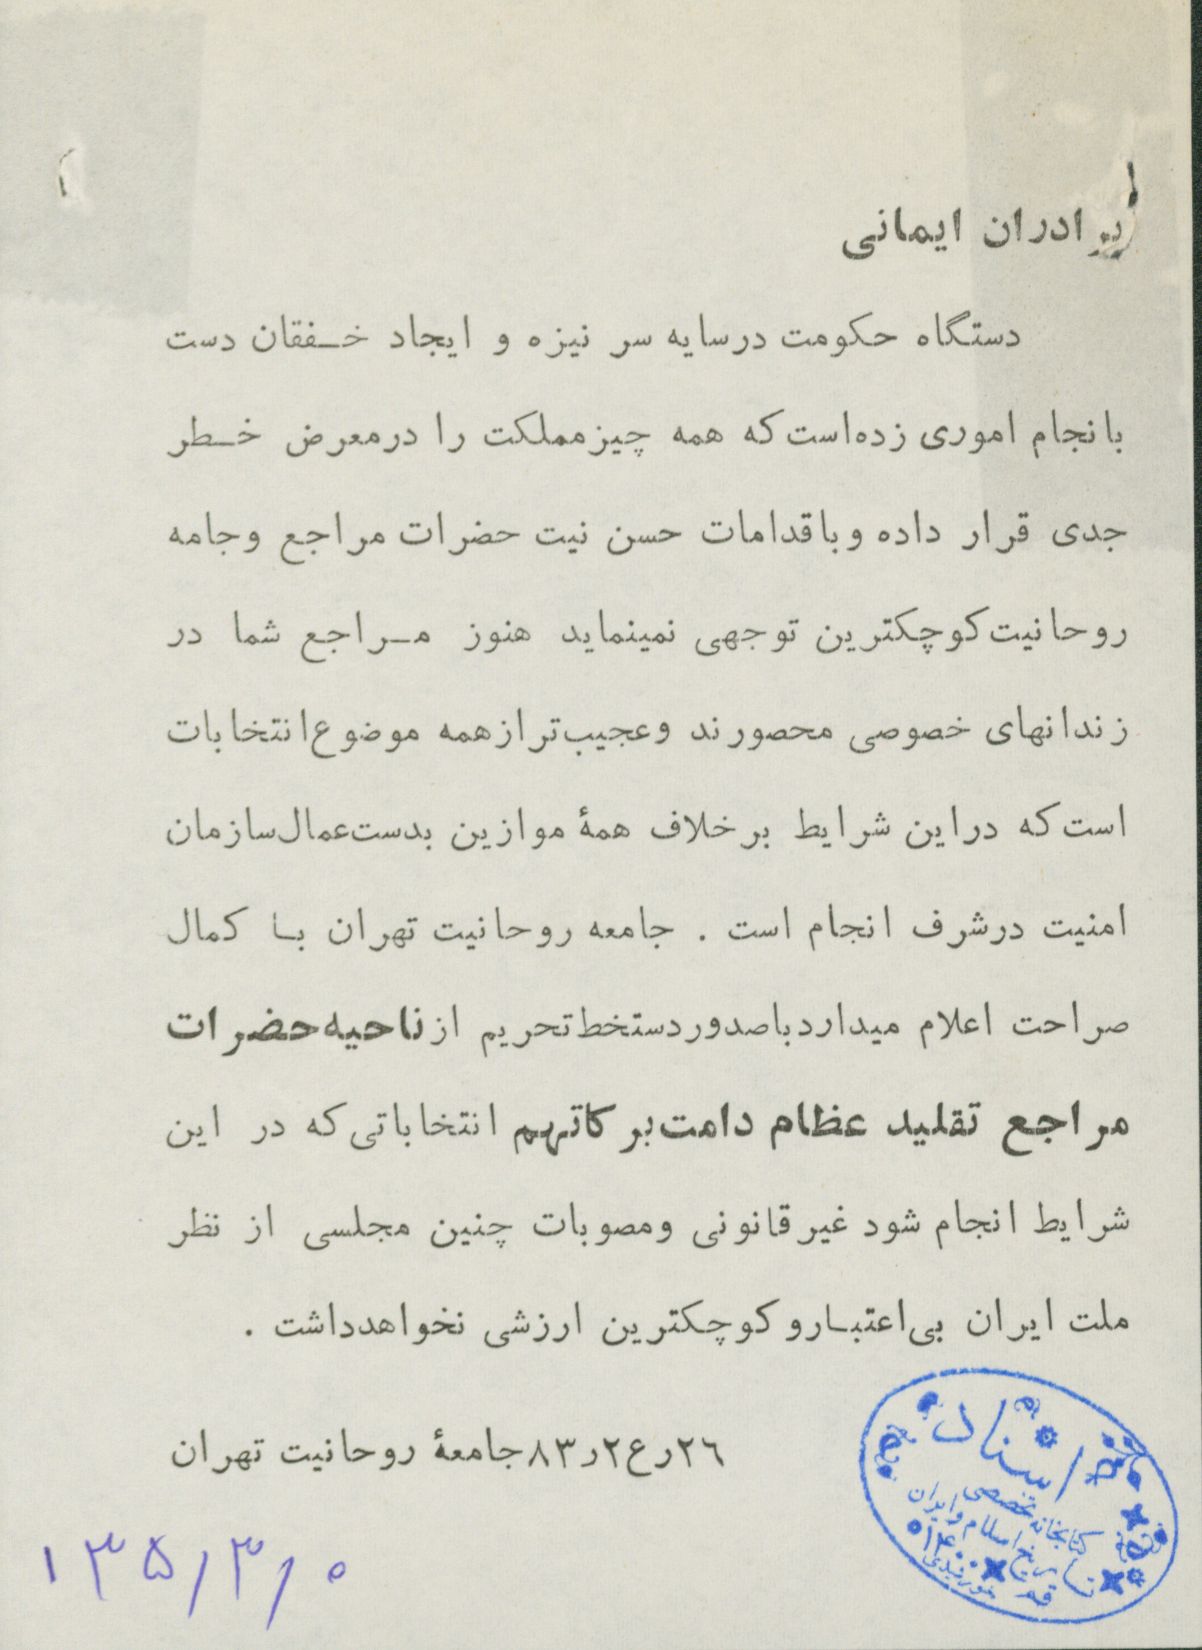 برادران ایمانی
دستگاه حکومت درسایه سر نیزه و ایجاد خـفقان دست
بانجام اموری زده‌است که همه چیزمملکت را درمعرض خـطر
جدی قرار داده و باقدامات حسن نیت حضرات مراجع وجامه
روحانیت کوچکترین توجهی نمینماید هنوز مـراجع شما در
زندانهای خصوصی محصورند وعجیب‌ترازهمه موضوع انتخابات
است که دراین شرایط برخلاف همهٔ موازین بدست‌عمال‌سازمان
امنیت درشرف انجام است . جامعه روحانیت تهران بـا کمال
صراحت اعلام میداردباصدوردستخط‌تحریم از ناحیه‌حضرات
مراجع تقلید عظام دامت‌برکاتهم انتخاباتی که در این
شرایط انجام شود غیرقانونی ومصوبات چنین مجلسی از نظر
ملت ایران بی‌اعتبـارو کوچکترین ارزشی نخواهدداشت .
۲۶رع۲ر۸۳جامعهٔ روحانیت تهران
اسناد
کتابخانه تخصصی
تاریخ اسلام و ایران
قم
۱۳۵/۳/۰